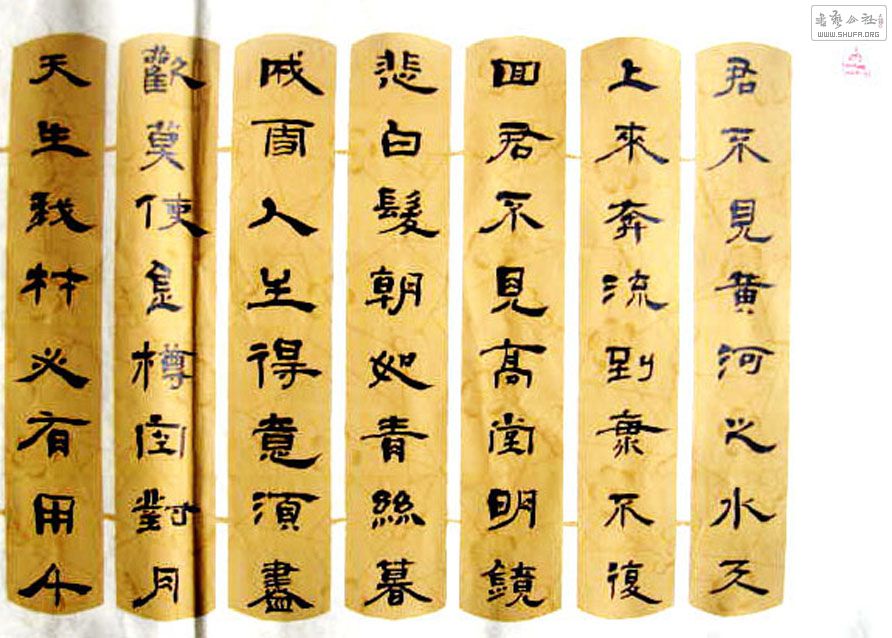 君不見黃河之水天
上來奔流到不復
回君不見高堂明鏡
悲白髮朝如青絲暮
成雪人生得意須盡
歡莫使金樽空對月
天生我材必有用千
WWW.SHUFA.ORG